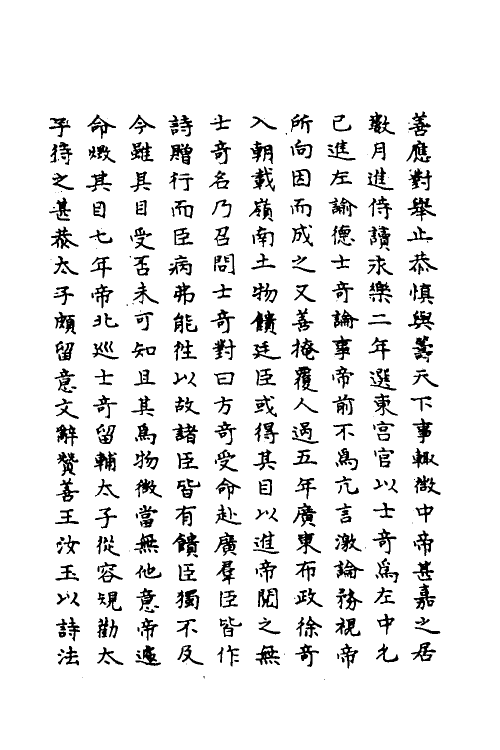 善應對舉止恭慎與籌天下事輙微中帝甚嘉之居
數月進侍讀永樂二年選東宮官以士奇爲左中允
已進左諭德士奇論事帝前不爲亢言激論務視帝
所向因而成之又善掩覆人過五年廣東布政徐奇
入朝載嶺南土物饋廷臣或得其目以進帝閱之無
士奇名乃召問士奇對曰方奇受命赴廣羣臣皆作
詩贈行而臣病弗能徃以故諸臣皆有饋臣獨不及
今雖具目受否未可知且其爲物微當無他意帝遽
命燬其目七年帝北巡士奇留輔太子從容規勸太
子待之甚恭太子頗留意文辭贊善王汝玉以詩法